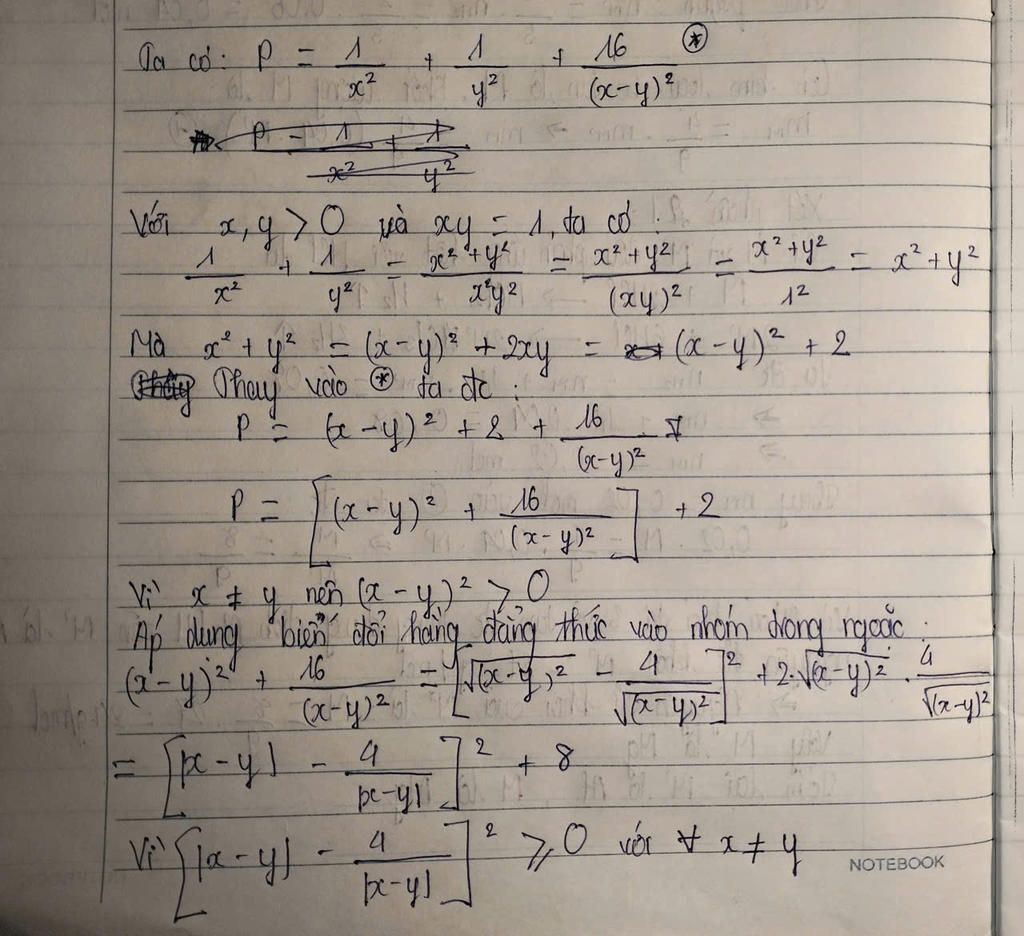 Ta có: P = 1/x² + 1/y² + 16/(x-y)² (*)
P = 1/x² + 1/y²
Với x, y > 0 và xy = 1, ta có :
1/x² + 1/y² = (x² + y²)/(x²y²) = (x² + y²)/(xy)² = (x² + y²)/1² = x² + y²
Mà x² + y² = (x-y)² + 2xy = (x-y)² + 2
Thay vào (*) ta đc :
P = (x-y)² + 2 + 16/(x-y)²
P = [(x-y)² + 16/(x-y)²] + 2
Vì x ≠ y nên (x-y)² > 0
Áp dụng biến đổi hằng đẳng thức vào nhóm trong ngoặc :
(x-y)² + 16/(x-y)² = [√(x-y)² - 4/√(x-y)²]² + 2.√(x-y)² . 4/√(x-y)²
= [|x-y| - 4/|x-y|]² + 8
Vì [|x-y| - 4/|x-y|]² ⩾ 0 với ∀ x ≠ y
NOTEBOOK